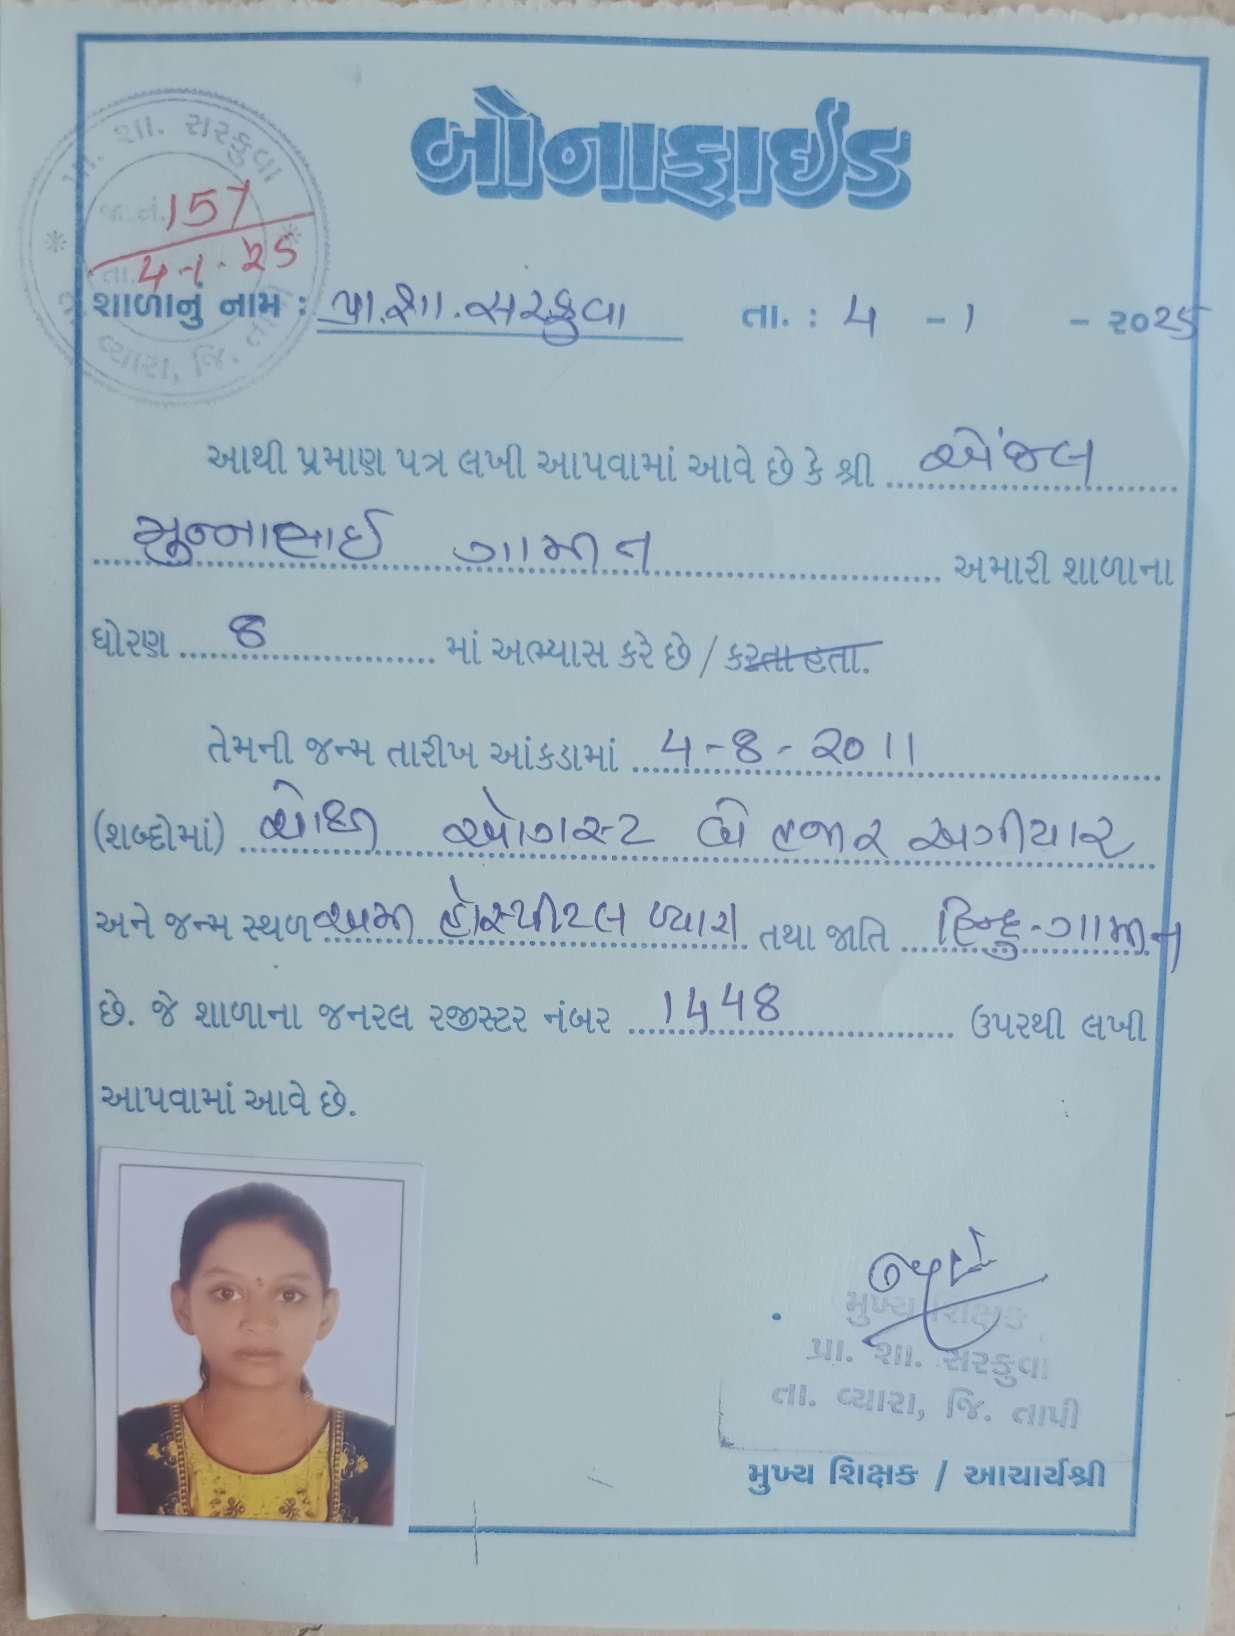 બોનાફાઈડ
પ્રા. શા. સરકુવા
જા.નં. 157
તા. 4-1-25
તા. વ્યારા, જિ. તાપી
શાળાનું નામ : પ્રા.શા.સરકુવા તા. : 4 - 1 - ૨૦૨૫
આથી પ્રમાણ પત્ર લખી આપવામાં આવે છે કે શ્રી એંજલ
મુન્નાભાઈ ગામીત અમારી શાળાના
ધોરણ 8 માં અભ્યાસ કરે છે / કરતા હતા.
તેમની જન્મ તારીખ આંકડામાં 4-8-2011
(શબ્દોમાં) ચોથી ઓગસ્ટ બે હજાર અગીયાર
અને જન્મ સ્થળ અમી હોસ્પીટલ વ્યારા તથા જાતિ હિન્દુ-ગામીત
છે. જે શાળાના જનરલ રજીસ્ટર નંબર 1448 ઉપરથી લખી
આપવામાં આવે છે.
મુખ્ય શિક્ષક
પ્રા. શા. સરકુવા
તા. વ્યારા, જિ. તાપી
મુખ્ય શિક્ષક / આચાર્યશ્રી